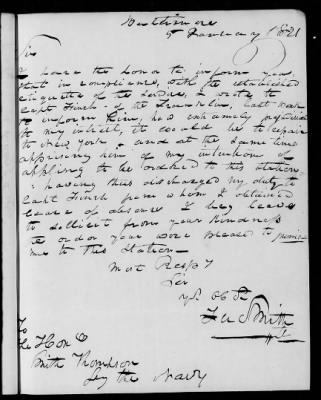 Baltimore
5 January 1821
Sir
I have the honor to inform you
that in compliance, with the established
etiquette of the Service, I wrote to
Capt Finch of the Franklin, last
to inform him, how extremely
to my wishes, it would be to repair
to New York, and at the same time
apprising him of my intention of
applying to be ordered to this Station.
having thus discharged my duty to
Capt Finch from whom I obtained
leave of absence I beg leave
to sollicit from your kindness
to order your were please to permit
me to this Station
Most Respy
Sir
Yr Ob St
Smith
To
The Hon
Smith Thompson
Sey the Navy